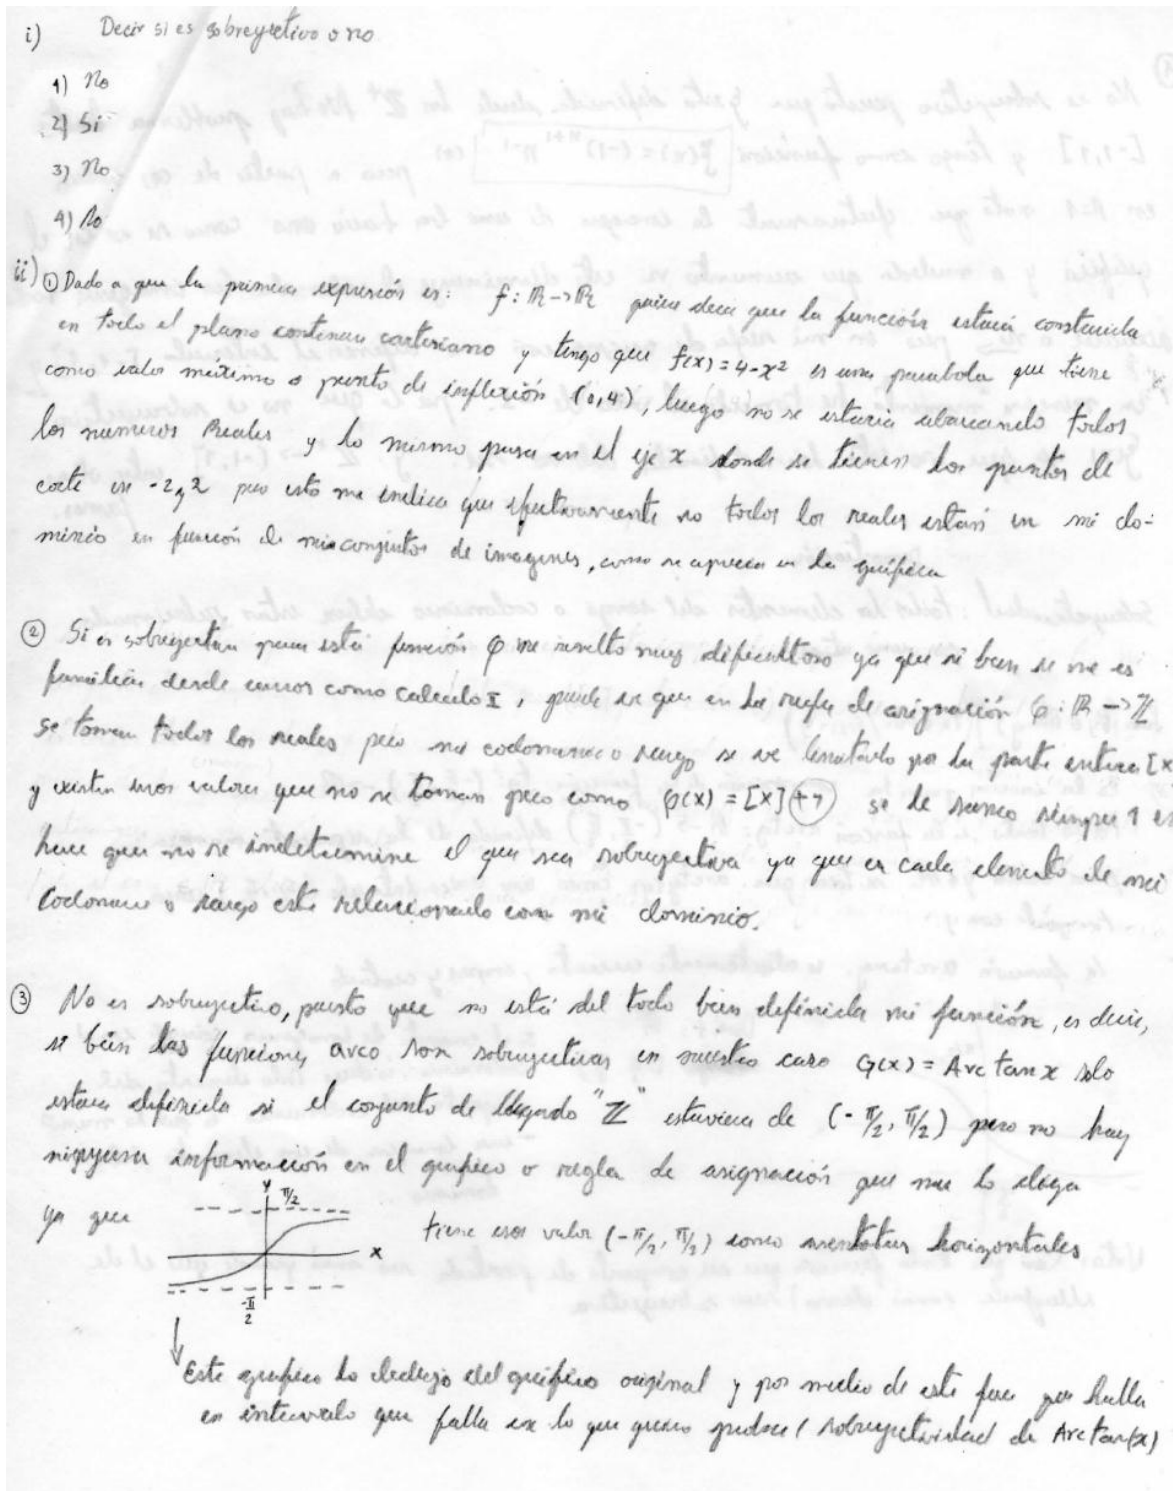 i) Decir si es sobreyectivo o no
1) No
2) Si
3) No
4) No
ii) ① Dado a que la primera expresión es: f: ℝ → ℝ quiere decir que la función estará construida
en todo el plano continuo cartesiano y tengo que f(x) = 4 - x² es una parabola que tiene
como valor máximo o punto de inflexión (0,4), luego no se estaria abarcando todos
los numeros Reales y lo mismo pasa en el eje x donde se tienen los puntos de
corte en -2 y 2 pero esto me indica que efectivamente no todos los reales están en mi do-
minio en función de mis conjuntos de imagenes, como se aprecia en la gráfica
② Si es sobreyectiva para esta función φ me resulto muy dificultoso ya que si bien se me es
familiar desde cursos como calculo I, puede ser que en la regla de asignación φ: ℝ → ℤ
se toman todos los reales pero mi codominio o rango se ve limitado por la parte entera [x
y existen unos valores que no se toman pero como φ(x) = [x] + 1 se le suma siempre 1 es
hace que no se indetermine el que sea sobreyectiva ya que es cada elemento de mi
Codominio o rango este relacionado con mi dominio.
③ No es sobreyectivo, puesto que no está del todo bien definida mi función, es decir,
si bien las funciones arco son sobreyectivas en nuestro caso G(x) = Arc tan x solo
estara definida si el conjunto de llegada "ℤ" estuviera de (-π/2, π/2) pero no hay
ninguna información en el grafico o regla de asignación que me lo diga
ya que
y
π/2
x
-π/2
tiene esos valor (-π/2, π/2) como asintotas horizontales
Este grafico lo deduje del gráfico original y por medio de este fue que halle
en intervalo que falla en lo que quiero probar (sobreyectividad de Arc tan(x)